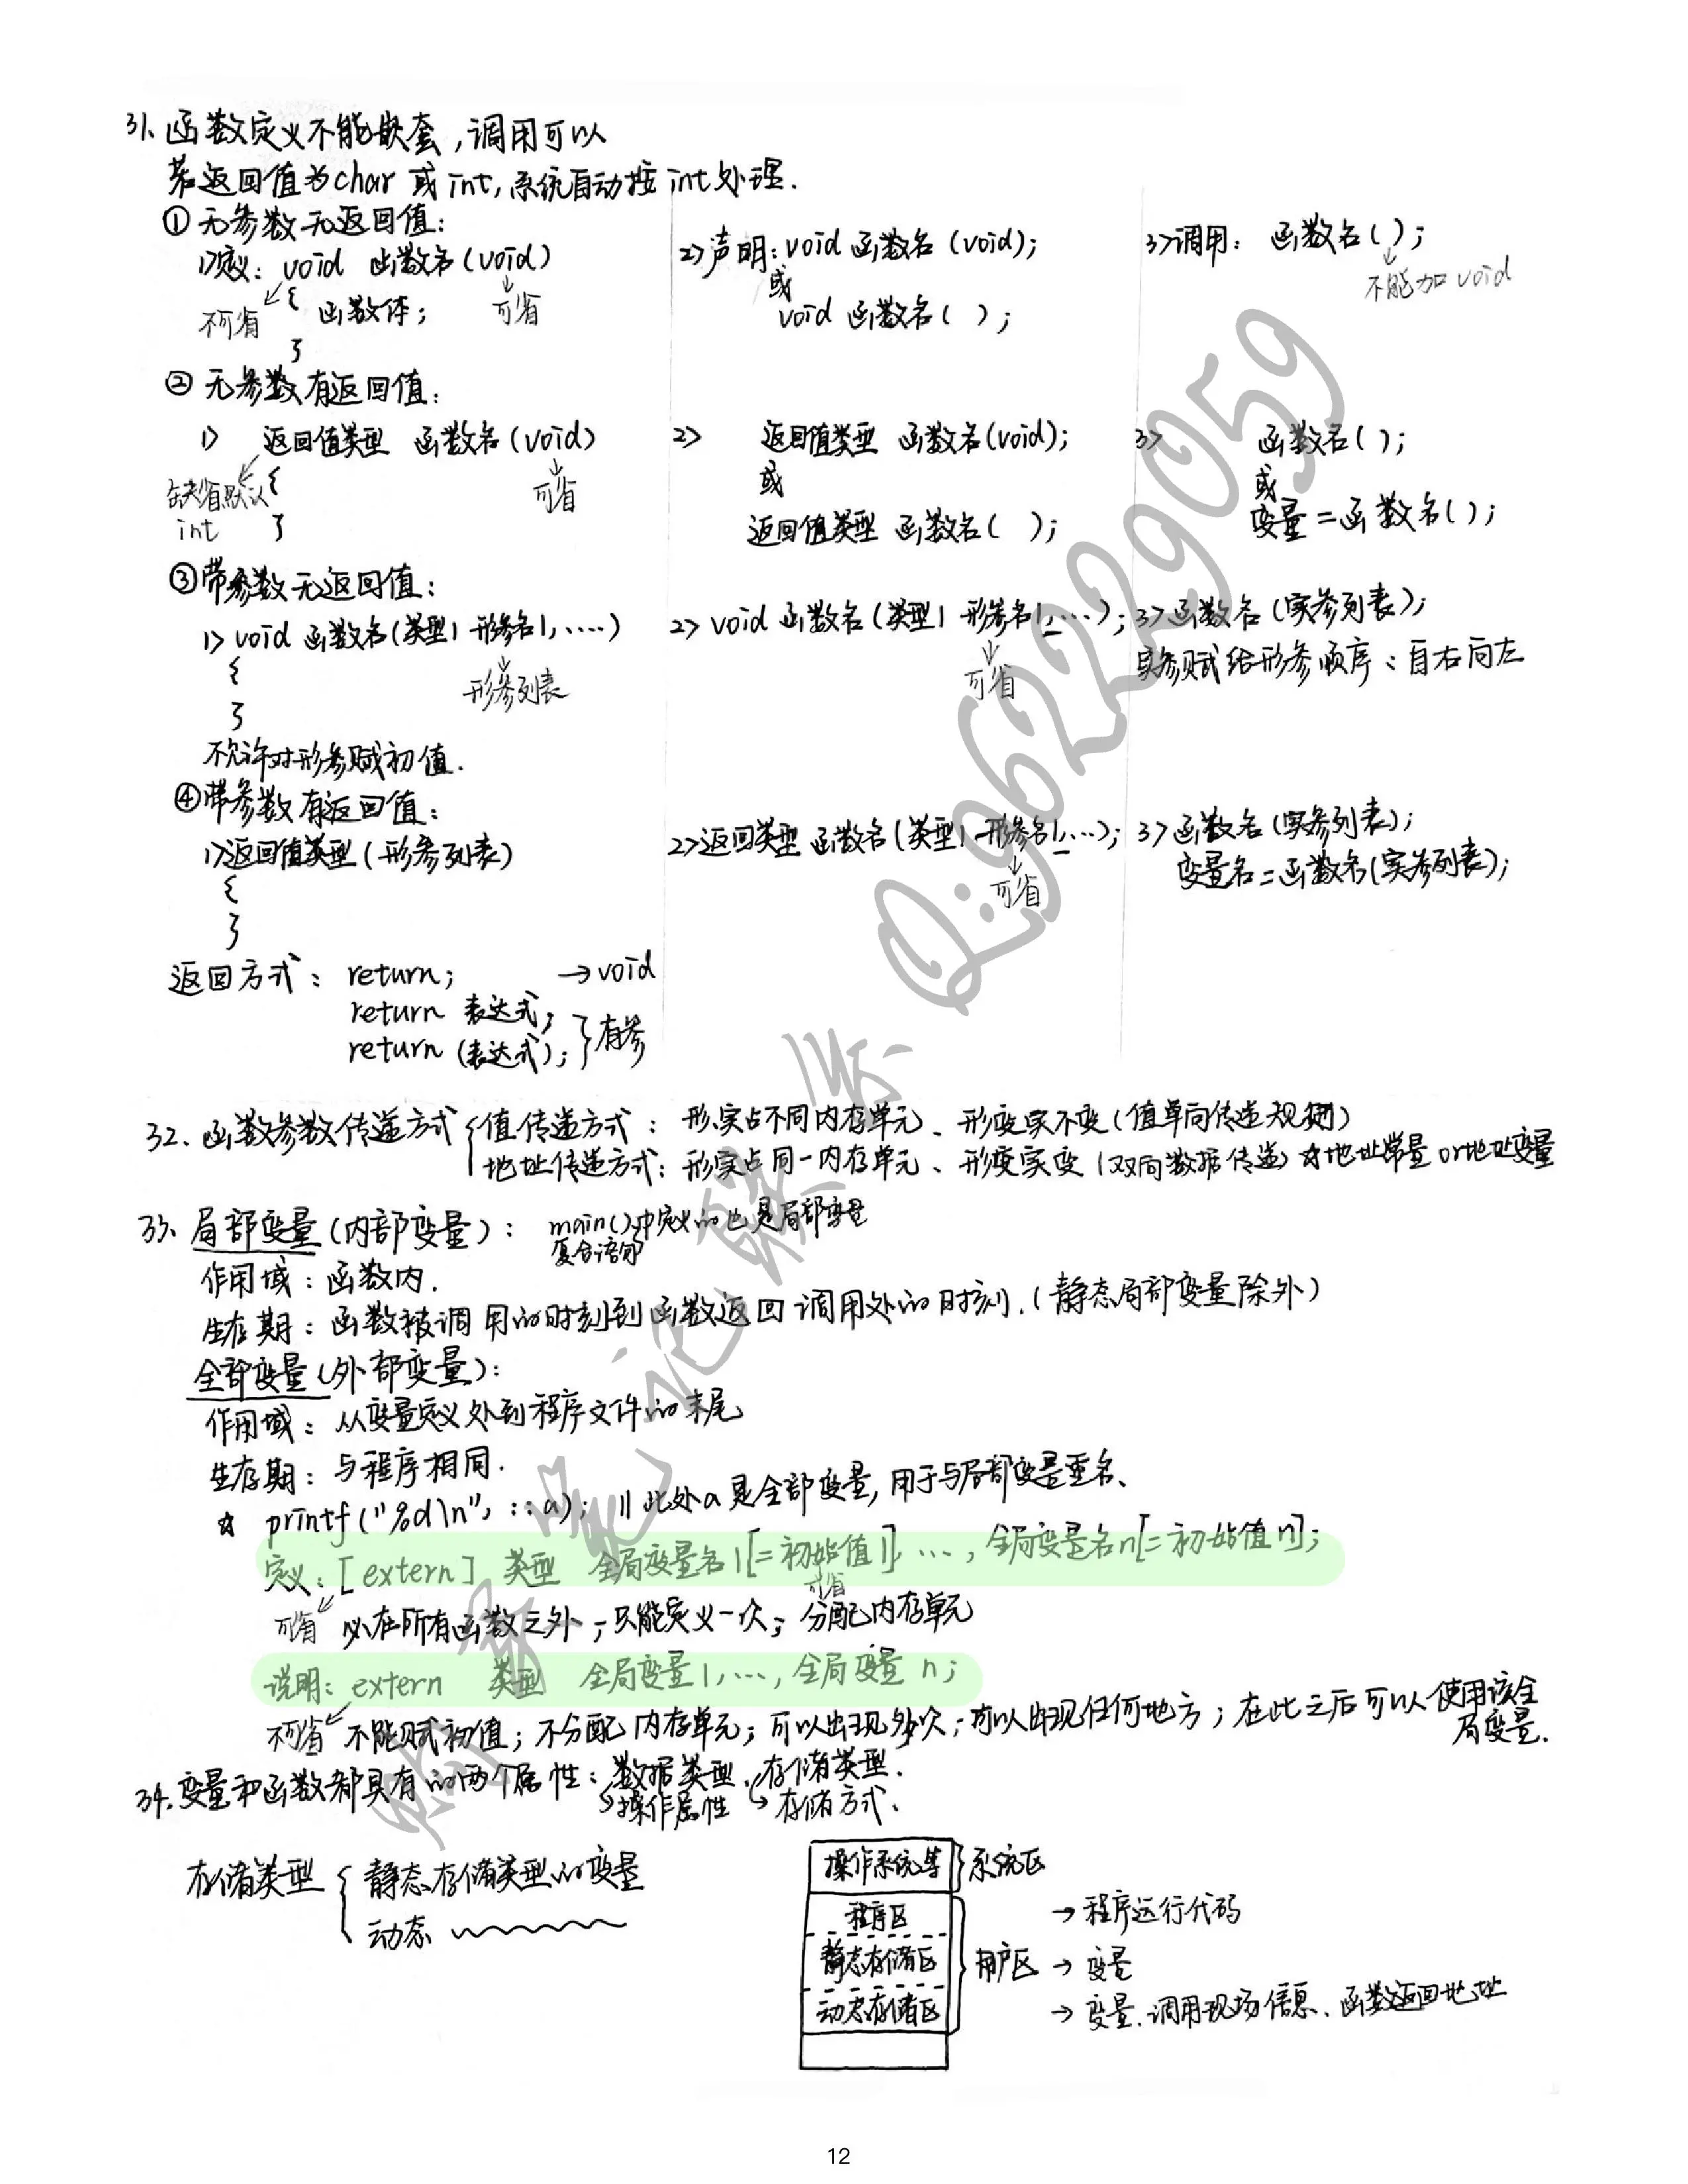 31. 函数定义不能嵌套,调用可以
若返回值为char 或 int,系统自动按 int 处理.
① 无参数无返回值:
1>定义: void 函数名(void)
不可省 { 函数体; 可省
}
2>声明: void 函数名 (void);
或
void 函数名( );
3>调用: 函数名( );
不能加 void
② 无参数有返回值:
1> 返回值类型 函数名(void)
缺省默认 { 可省
int }
2> 返回值类型 函数名(void);
或
返回值类型 函数名( );
3> 函数名( );
或
变量=函数名( );
③带参数无返回值:
1> void 函数名(类型1 形参名1,....)
{ 形参列表
}
不允许对形参赋初值.
2> void 函数名(类型1 形参名1,...);
可省
3>函数名(实参列表);
实参赋给形参顺序:自右向左
④带参数有返回值:
1>返回值类型(形参列表)
{
}
2>返回类型 函数名(类型1 形参名1,...);
可省
3>函数名(实参列表);
变量名=函数名(实参列表);
返回方式: return; →void
return 表达式;
return (表达式); }有参
32. 函数参数传递方式 { 值传递方式: 形实占不同内存单元、形变实不变(值单向传递规则)
地址传递方式: 形实占同一内存单元、形变实变(双向数据传递)☆地址常量or地址变量
33. 局部变量(内部变量): main()中定义的也是局部变量
复合语句
作用域: 函数内.
生存期: 函数被调用的时刻到函数返回调用处的时刻.(静态局部变量除外)
全部变量(外部变量):
作用域: 从变量定义处到程序文件的末尾
生存期: 与程序相同.
☆ printf("%d\n", ::a); // 此处a是全部变量,用于与局部变量重名.
定义: [extern] 类型 全局变量名1[=初始值1], ..., 全局变量名n[=初始值n];
可省
可省 必在所有函数之外;只能定义一次;分配内存单元
说明: extern 类型 全局变量1,...,全局变量n;
不可省 不能赋初值;不分配内存单元;可以出现多次;可以出现任何地方;在此之后可以使用该全
局变量.
34. 变量和函数都具有的两个属性: 数据类型、存储类型.
↳操作属性 ↳存储方式.
存储类型 { 静态存储类型的变量
动态
操作系统等 }系统区
程序区 → 程序运行代码
静态存储区 }用户区 → 变量
动态存储区 → 变量、调用现场信息、函数返回地址
Q:96229059
12